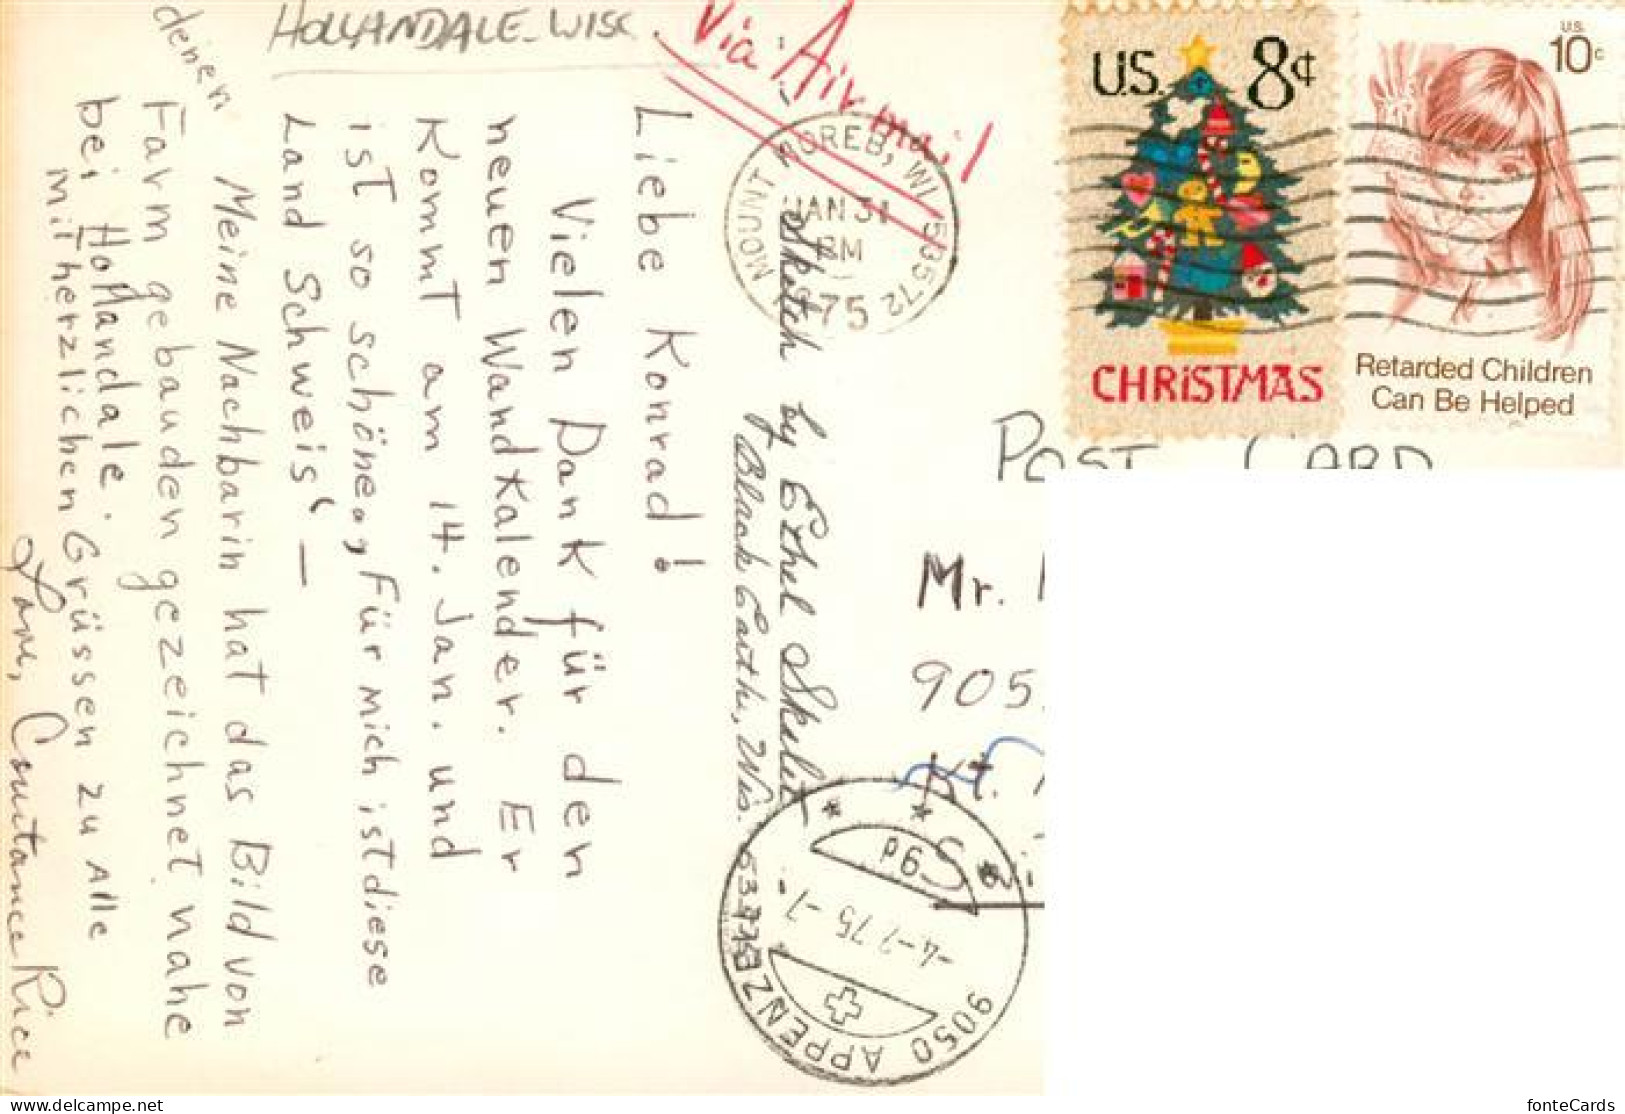 HOLLANDALE - WISC.
Via Air mail
Liebe Konrad!
Vielen Dank für den
neuen Wandkalender. Er
Kommt am 14. Jan. und
ist so schöne, Für mich ist diese
Land Schweis' —
Meine Nachbarin hat das Bild von
deinen
Farm gebauden gezeichnet nahe
bei Hollandale.
mit herzlichen Grüssen zu Alle
Love, Constance Rice
Sketch by Ethel Skelit
Black Earth, Wis.
MOUNT HOREB, WI 53572
JAN 31
PM
1975
U.S. 8¢
CHRISTMAS
U.S.
10c
Retarded Children
Can Be Helped
POST CARD
Mr.
905
Kt.
9050 APPENZELL
-4-2.75-7
delcampe.net
fonteCards